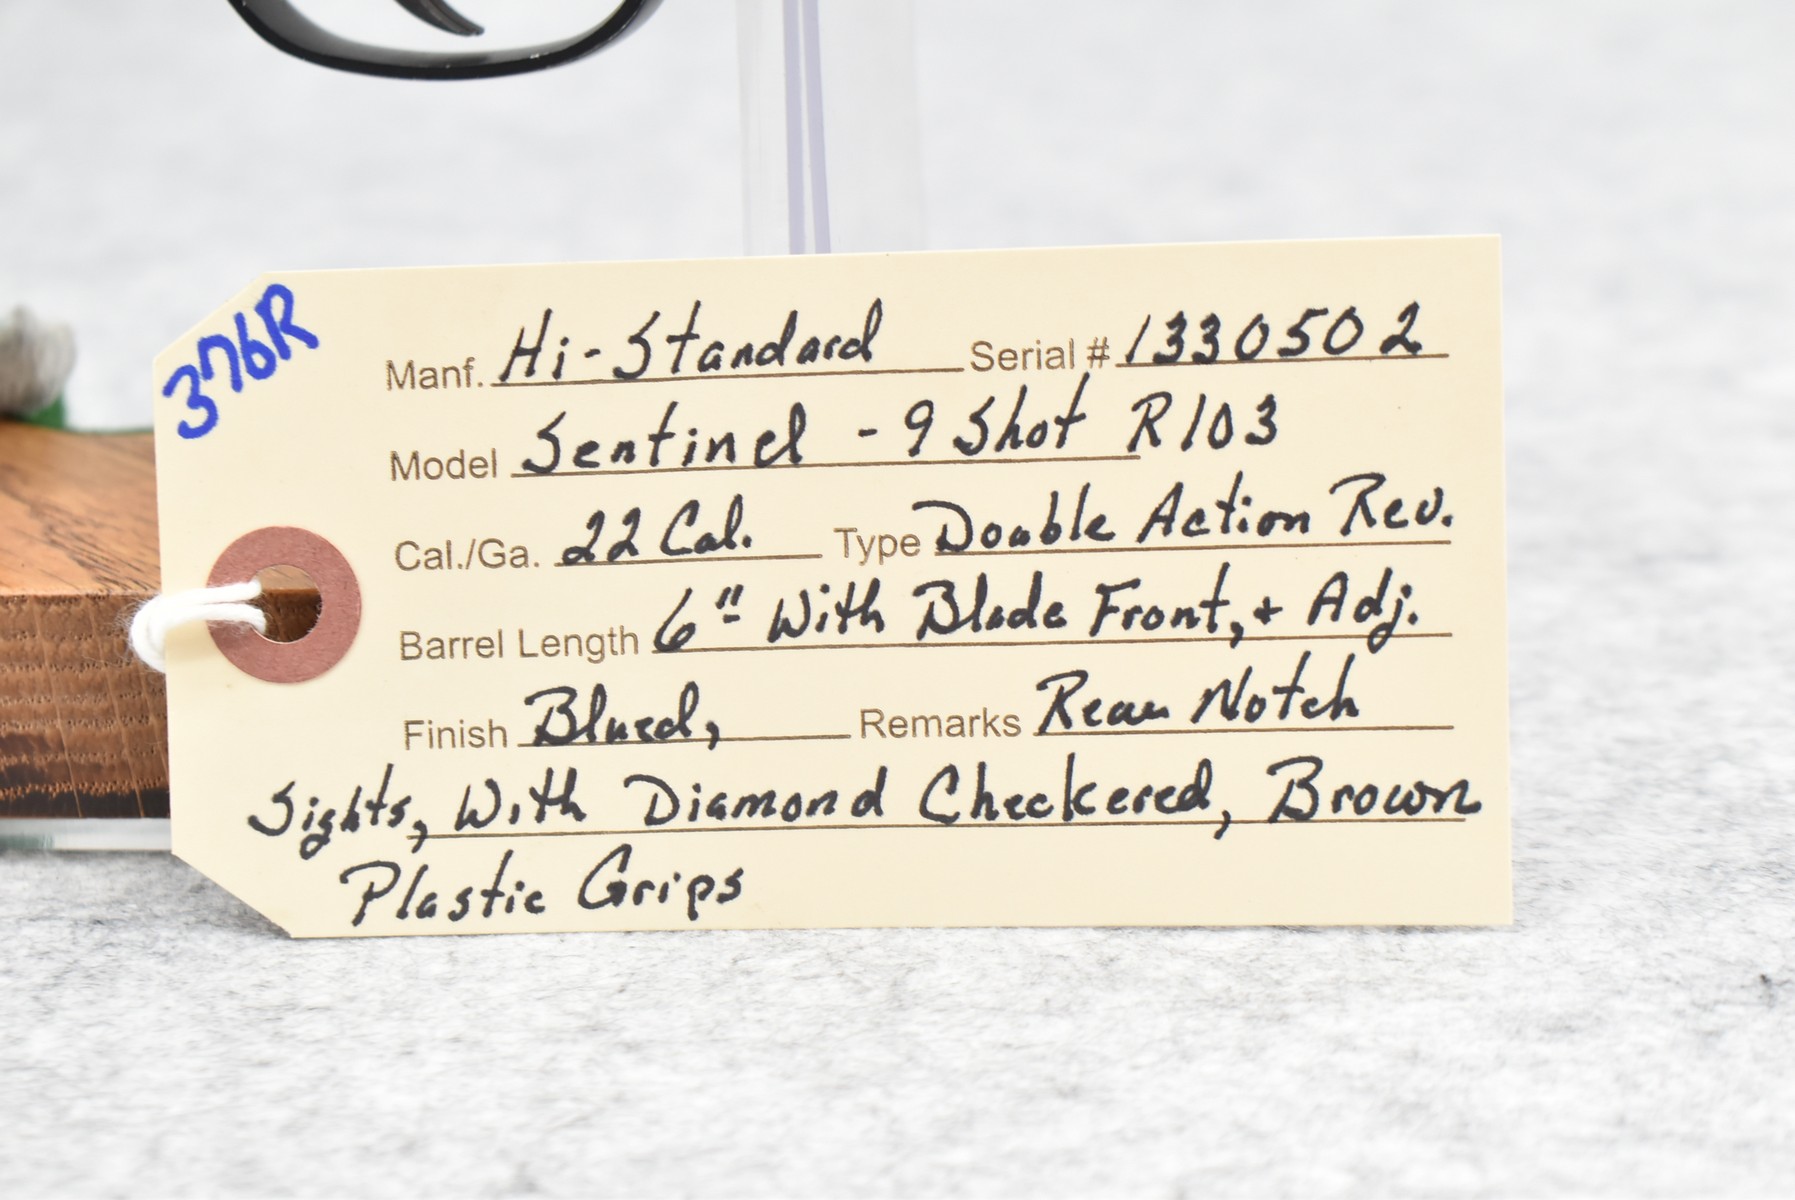 376R
Manf. Hi-Standard Serial # 1330502
Model Sentinel - 9 Shot R103
Cal./Ga. 22 Cal. Type Double Action Rev.
Barrel Length 6" With Blade Front, + Adj.
Finish Blued, Remarks Rear Notch
Sights, With Diamond Checkered, Brown
Plastic Grips